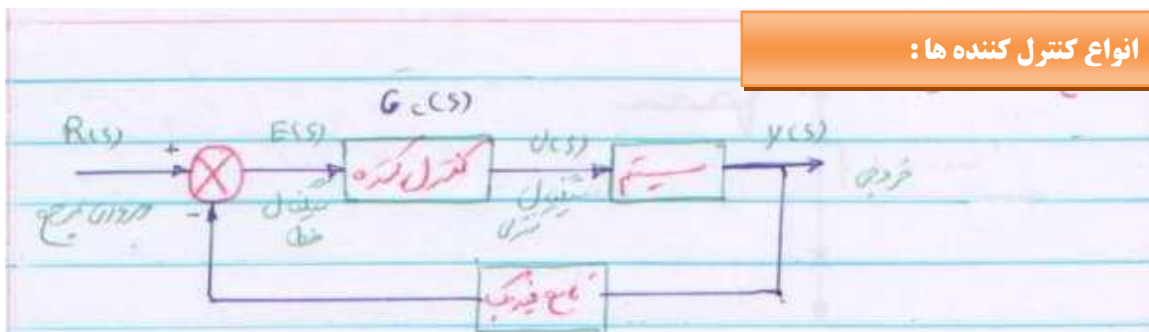 انواع کنترل کننده ها :
G c(s)
R(s) + E(s) کنترل کننده U(s) سیستم y(s)
ورودی مرجع - سیگنال خطا سیگنال کنترل خروجی
تابع فیدبک